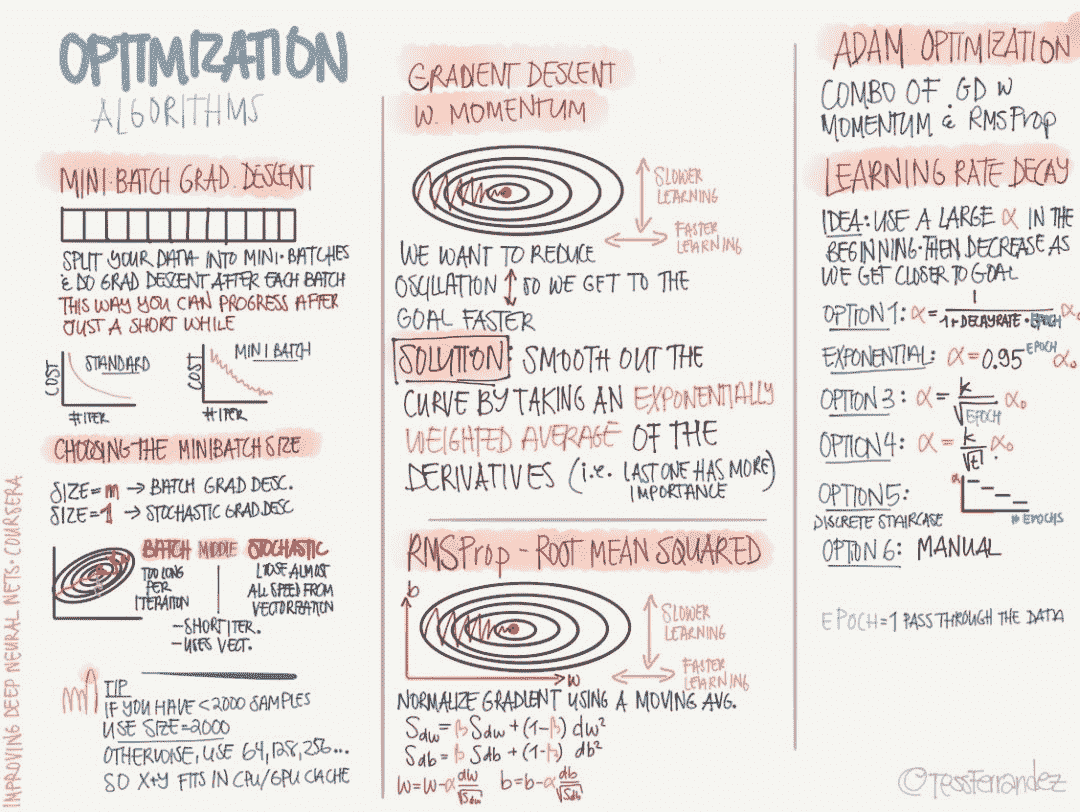 OPTIMIZATION
ALGORITHMS
MINI-BATCH GRAD. DESCENT
SPLIT YOUR DATA INTO MINI-BATCHES
& DO GRAD DESCENT AFTER EACH BATCH
THIS WAY YOU CAN PROGRESS AFTER
JUST A SHORT WHILE
COST
STANDARD
# ITER
COST
MINI BATCH
# ITER
CHOOSING THE MINIBATCH SIZE
SIZE=m → BATCH GRAD DESC.
SIZE=1 → STOCHASTIC GRAD.DESC
BATCH MIDDLE STOCHASTIC
TOO LONG
PER
ITERATION
LOSE ALMOST
ALL SPEED FROM
VECTORIZATION
-SHORT ITER.
-USES VECT.
TIP
IF YOU HAVE <2000 SAMPLES
USE SIZE=2000
OTHERWISE, USE 64,128,256...
SO X+Y FITS IN CPU/GPU CACHE
IMPROVING DEEP NEURAL NETS · COURSERA
GRADIENT DESCENT
W. MOMENTUM
SLOWER
LEARNING
FASTER
LEARNING
WE WANT TO REDUCE
OSCILLATION ↕ SO WE GET TO THE
GOAL FASTER
SOLUTION: SMOOTH OUT THE
CURVE BY TAKING AN EXPONENTIALLY
WEIGHTED AVERAGE OF THE
DERIVATIVES (i.e. LAST ONE HAS MORE)
IMPORTANCE
RMSProp - ROOT MEAN SQUARED
b
SLOWER
LEARNING
FASTER
LEARNING
w
NORMALIZE GRADIENT USING A MOVING AVG.
Sdw = β Sdw + (1-β) dw²
Sdb = β Sdb + (1-β) db²
w=w-α dw/√Sdw b=b-α db/√Sdb
ADAM OPTIMIZATION
COMBO OF GD W
MOMENTUM & RMSProp
LEARNING RATE DECAY
IDEA: USE A LARGE α IN THE
BEGINNING. THEN DECREASE AS
WE GET CLOSER TO GOAL
OPTION 1: α = 1/(1+DECAYRATE·EPOCH) α₀
EXPONENTIAL: α=0.95^EPOCH α₀
OPTION 3: α = k/√EPOCH α₀
OPTION 4: α = k/√t α₀
OPTION 5:
DISCRETE STAIRCASE
α
# EPOCHS
OPTION 6: MANUAL
EPOCH = 1 PASS THROUGH THE DATA
©TessFerrandez